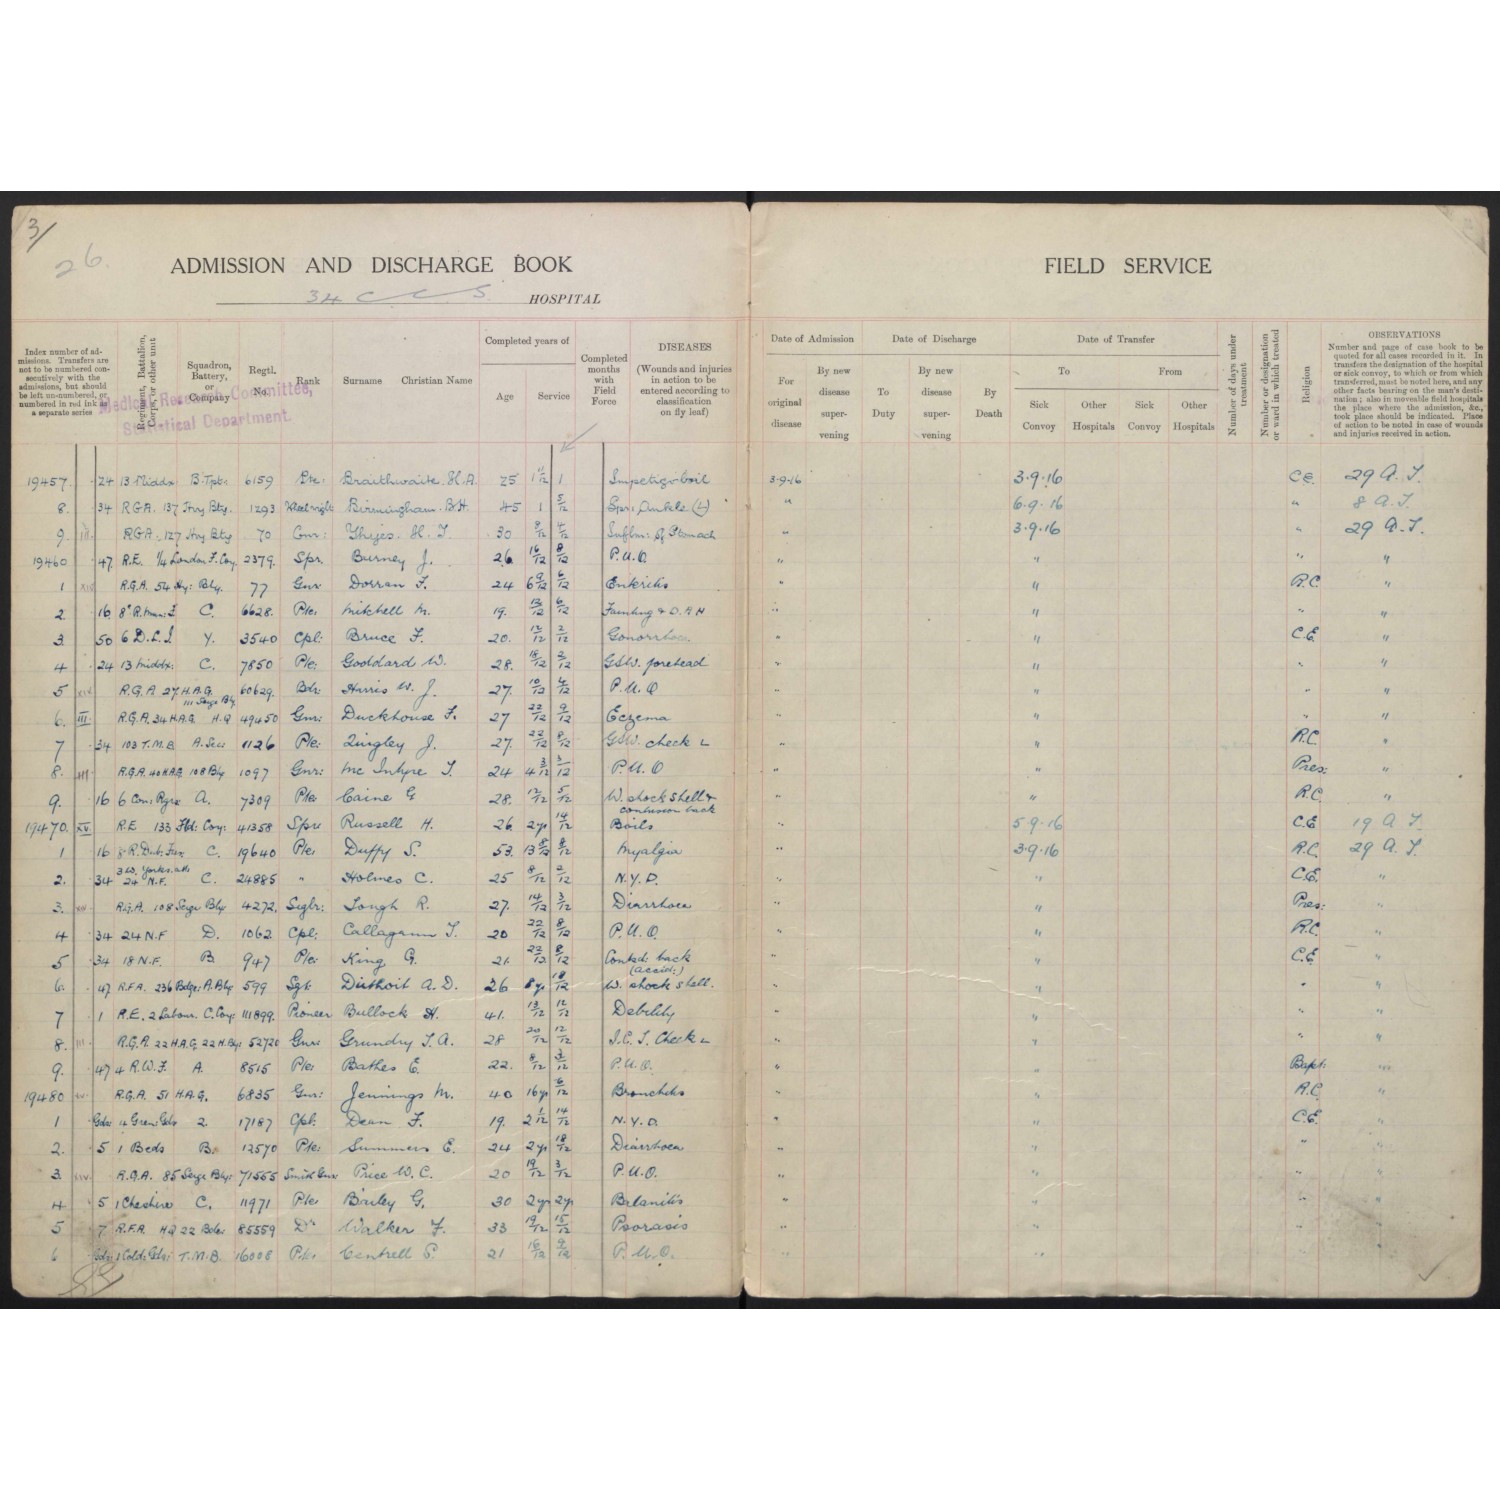 3/
26.
ADMISSION AND DISCHARGE BOOK
34 C C S. HOSPITAL
FIELD SERVICE
Index number of admissions. Transfers are not to be numbered consecutively with the admissions, but should be left un-numbered, or numbered in red ink as a separate series
Regiment, Battalion, Corps, or other unit
Squadron, Battery, or Company
Regtl. No.
Rank
Surname Christian Name
Completed years of
Age Service
Completed months with Field Force
DISEASES
(Wounds and injuries in action to be entered according to classification on fly leaf)
Medical Research Committee,
Statistical Department.
Date of Admission
For original disease
By new disease supervening
Date of Discharge
To Duty
By new disease supervening
By Death
Date of Transfer
To From
Sick Convoy
Other Hospitals
Sick Convoy
Other Hospitals
Number of days under treatment
Number or designation or ward in which treated
Religion
OBSERVATIONS
Number and page of case book to be quoted for all cases recorded in it. In transfers the designation of the hospital or sick convoy, to which or from which transferred, must be noted here, and any other facts bearing on the man's destination; also in moveable field hospitals the place where the admission, &c., took place should be indicated. Place of action to be noted in case of wounds and injuries received in action.
19457. 24 13 Middx B. Tpt: 6159 Pte: Braithwaite. H. A. 25 1 Impetigo boil 3-9-16 3-9-16 C.E. 29 A.T.
8. 34 RGA. 137 Hvy Bty. 1293 Birmingham. B.H. 45 1 5/12 Spr: Ankle (L) " 6-9-16 " 8 A.T.
9. III RGA. 127 Hvy Bty 70 Gnr: H. T. 30 8/12 4/12 Inflm: of Stomach " 3-9-16 " 29 A.T.
19460 47. R.E. 1/4 London F. Coy. 2379. Spr. Burney J. 26. 16/12 8/12 P.U.O. " " " "
1 R.G.A. 54 Hy: Bty. 77 Gnr Dorran F. 24 6 9/12 6/12 Enteritis " " R.C. "
2 16 8 R. Mun: F. C. 6628. Pte: Mitchell M. 19. 12/12 6/12 Fainting & D.A.H " " " "
3 50 6 D.L.I. Y. 3540 Cpl: Bruce F. 20. 12/12 2/12 Gonorrhoea " " C.E. "
4 24 13 Middx: C. 7850 Pte: Goddard W. 28. 18/12 2/12 GSW. forehead " " " "
5 XIV R.G.A 27 H.A.G. 111 Siege Bty 60629. Bdr: Harris W. J. 27. 10/12 4/12 P.U.O " " " "
6. III. R.G.A. 34 H.A.G. H.Q 49450 Gnr: Duckhouse F. 27 22/12 9/12 Eczema " " " "
7 34 103 T.M.B. A. Sec 1126 Pte: Quigley J. 27. 22/12 8/12 GSW. cheek L " " R.C. "
8. III R.G.A. 40 H.A.G. 108 Bty 1097 Gnr: Mc Intyre T. 24 4 3/12 3/12 P.U.O " " Pres: "
9. 16 6 Con: Rgrs A. 7309 Pte: Caine G 28. 12/12 5/12 W. shock shell & contusion back " " R.C. "
19470. XV. R.E 133 Fld: Coy: 41358 Spr: Russell H. 26. 2 yr 14/12 Boils " 5-9-16 C.E 19 A.T.
1 16 8 R. Dub: Fus C. 19640 Pte: Duffy S. 53. 13 8/12 8/12 Myalgia " 3-9-16 R.C. 29 A.T.
2. 34 3 W. Yorks. att 24 N.F. C. 24885 " Holmes C. 25 8/12 2/12 N.Y.D. " " C.E. "
3. R.G.A. 108 Seige Bty 4272. Siglr: Lough R. 27. 14/12 3/12 Diarrhoea " " Pres: "
4 34 24 N.F D. 1062 Cpl: Callagann T. 20 22/12 8/12 P.U.O. " " R.C. "
5 34 18 N.F. B 947 Pte: King G. 21. 22/12 8/12 Contsd: back (accid:) " " C.E. "
6. 47 R.F.A. 236 Bdge: A. Bty 599 Sgt: Duthoit A. D. 26 8 yr 18/12 W. shock shell. " " " "
7 1 R.E. 2 Labour. C. Coy: 111899. Pioneer Bullock H. 41. 13/12 12/12 Debility " " " "
8. III R.G.A. 22 H.A.G. 22 H.By: 52720 Gnr: Grundry T. A. 28 20/12 12/12 I.C.T. Cheek L " " " "
9. 47 4 R.W.F. A. 8515 Pte: Bathes E. 22. 8/12 3/12 P.U.O. " " Bapt: "
19480 R.G.A. 51 H.A.G. 6835 Gnr: Jennings M. 40 16 yr 6/12 Bronchitis " " R.C. "
1 Gds: 4 Gren: Gds 2. 17187 Cpl: Dean F. 19. 2 1/12 14/12 N.Y.D. " " C.E. "
2. 5 1 Beds B. 12570 Pte: Summers E. 24 2 yr 18/12 Diarrhoea " " " "
3. XIV R.G.A. 85 Seige Bty: 71555 Smith Gnr Price W. C. 20 19/12 3/12 P.U.O. " " " "
4 5 1 Cheshire C. 11971 Pte: Bailey G. 30 2 yr 2 yr Balanitis " " " "
5 7 R.F.A. HQ 22 Bde: 85559 Dr Walker F. 33 19/12 15/12 Psorasis " " " "
6 Gds: 1 Cold: Gds: T.M.B. 16008 Pte: Centrell P. 21 16/12 9/12 P.U.O. " " " "